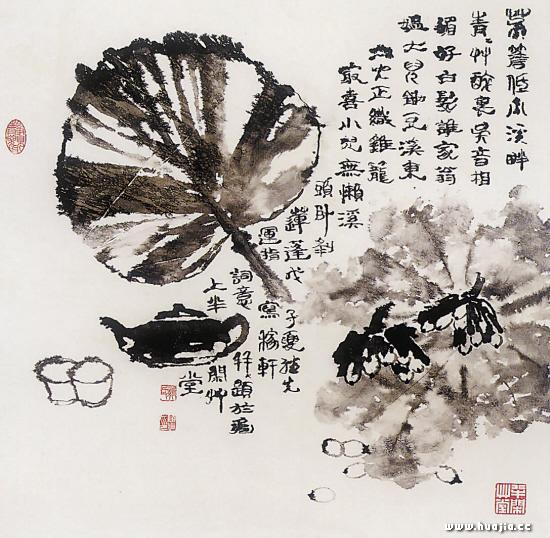 茅簷低小溪畔
青〻艸醉裏吳音相
媚好白髮誰家翁
媼大兒鋤豆溪東
中兒正織雞籠
最喜小兒無賴溪
頭卧剝
蓮蓬戊
子夏
運指
寫稼軒
詞意
題於
上半
閒艸
堂
www.huajia.cc